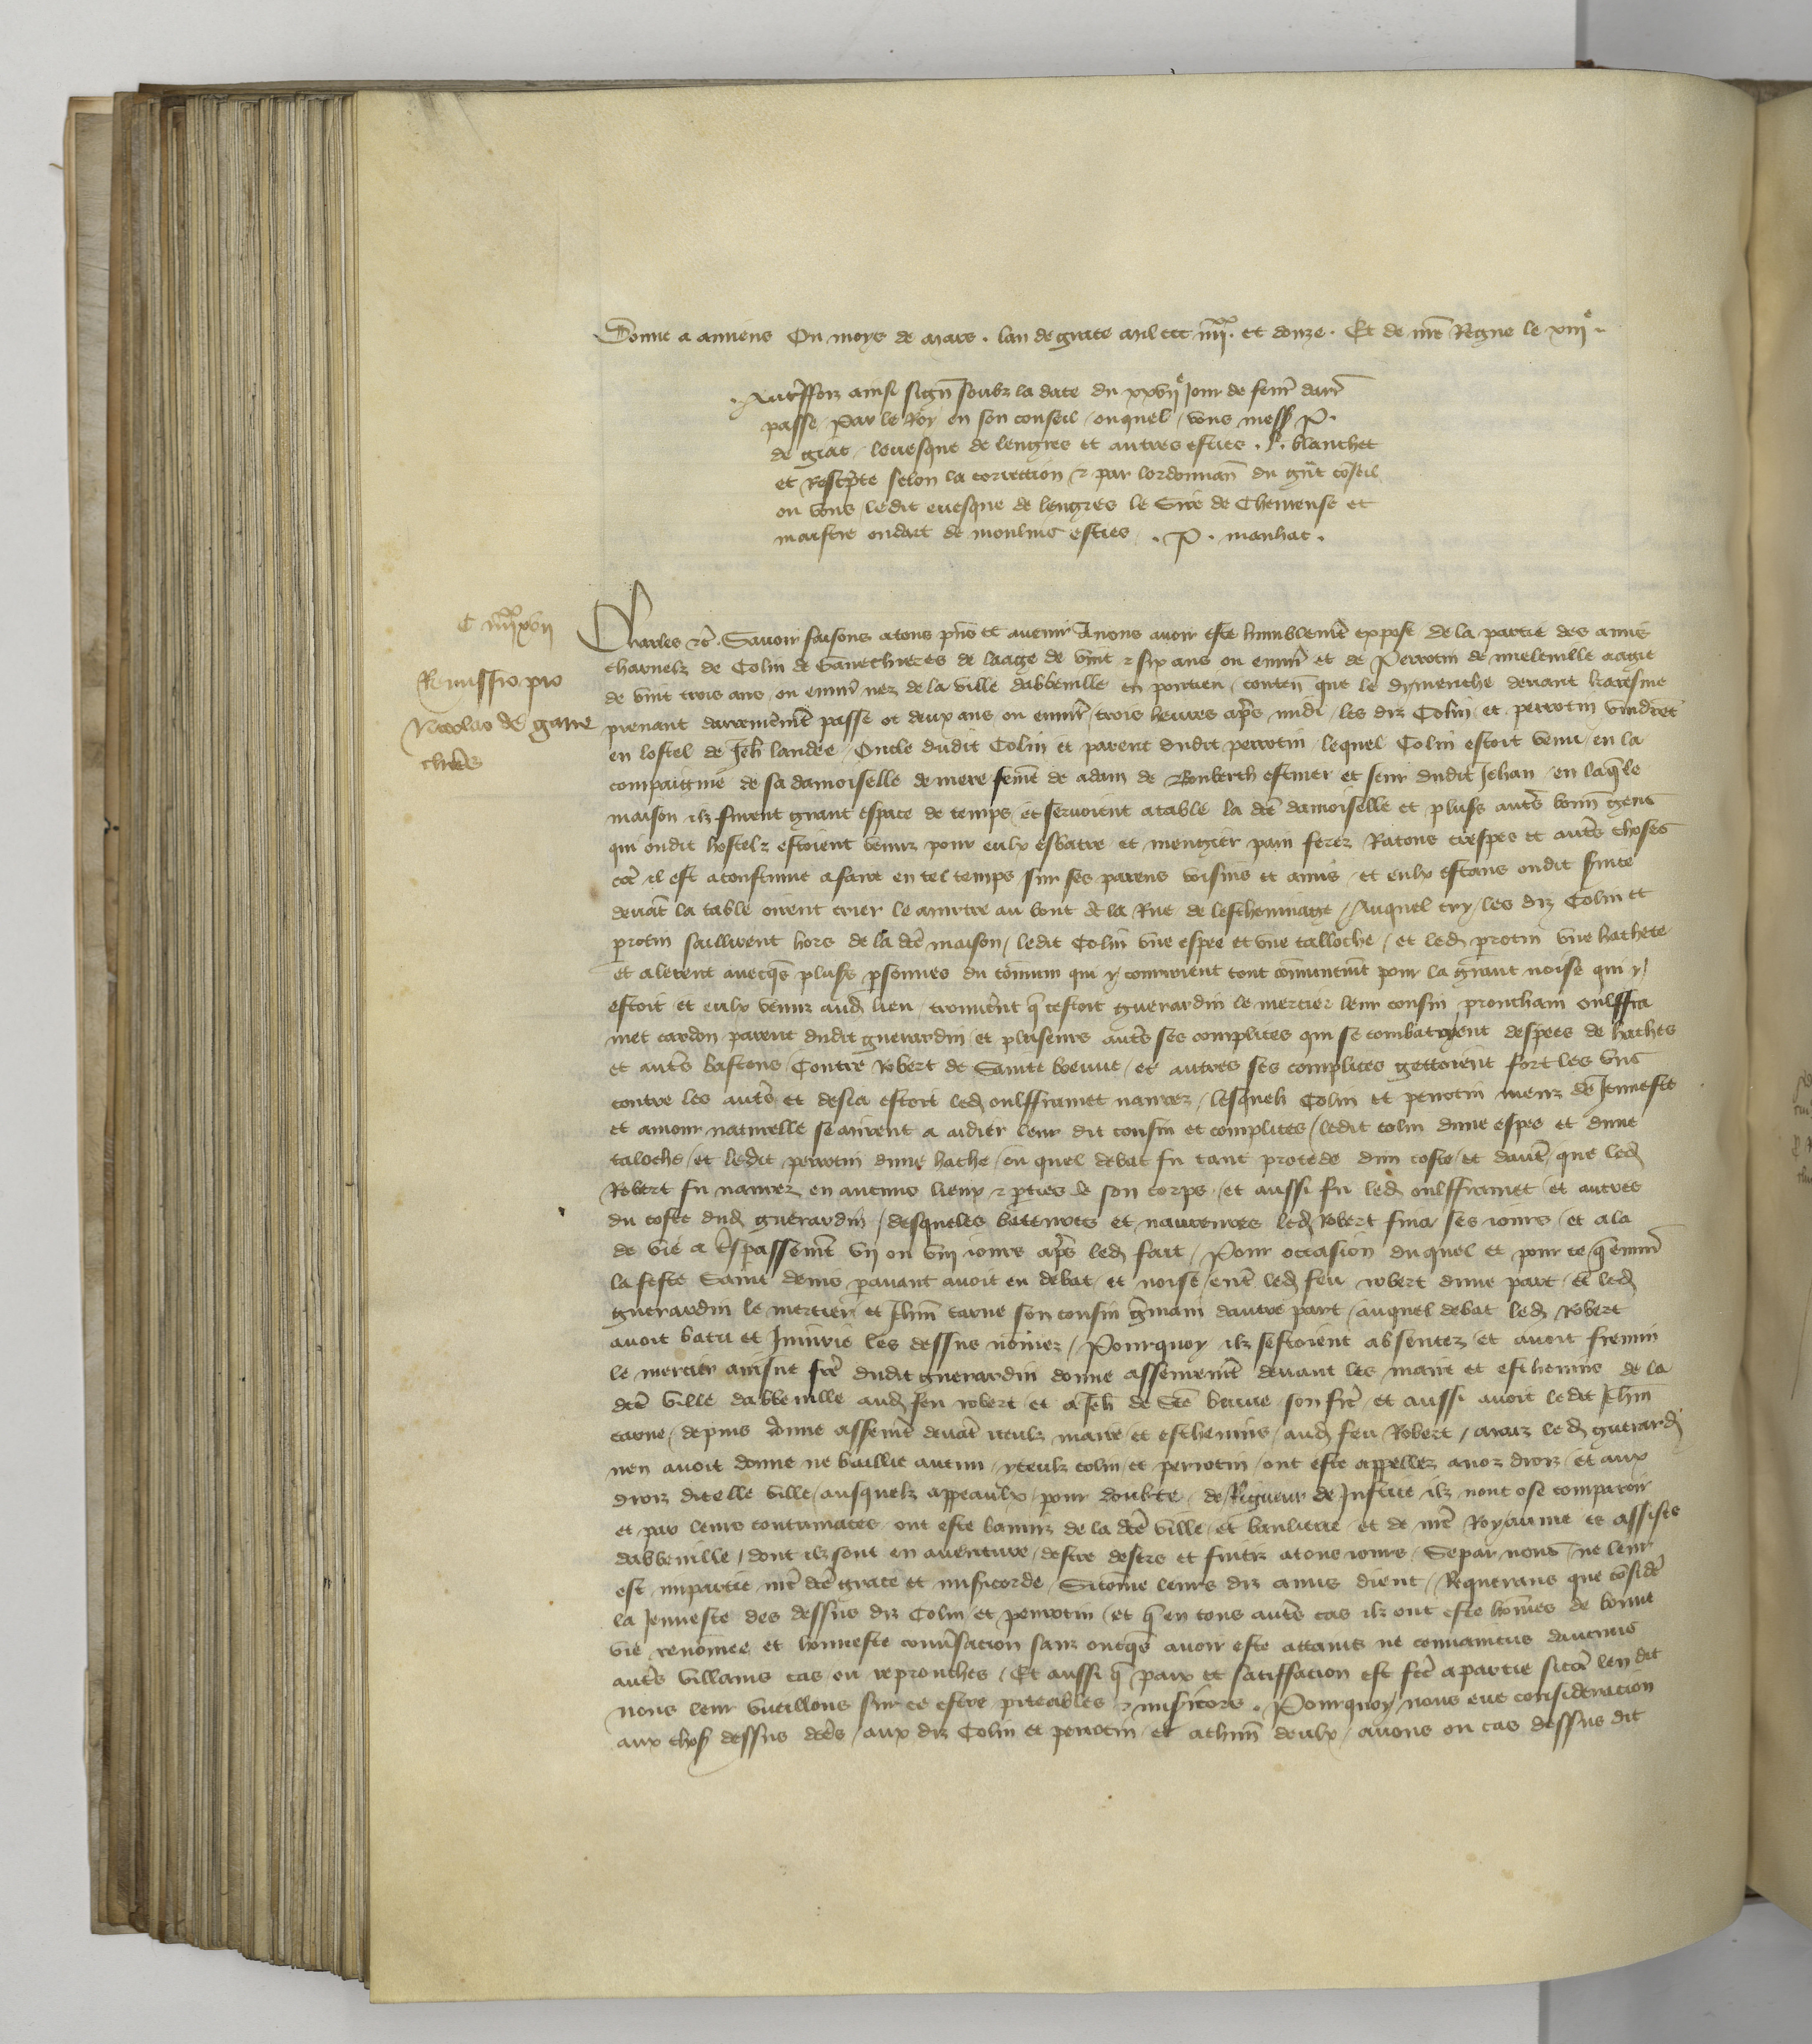 Donne a amiens Ou moys de mars . lan de grace mil ccc iiiixx. et douze . Et de nre Regne le xiiie .
. Autreffoiz ainsi signe soubz la date du xxviie Jour de fevr darr
passe / Par le Roy en son conseil / ouquel / vous mess P.
de giac / levesque de lengres et autres estiez . J. blanchet
et Rescpte selon la correction & par lordonnan du gnt coseil
ou vous ledit evesque de lengres le Sire de Chevreuse et
maistre oudart de moulins estiez . P . manhac .
C iiiixx xvii
Remissio pro
Nicolao de gaure
chires
Charles &c . Savoir faisons a tous pns et avenir A nous avoir este humblemet expose de la partie des amis
charnelz de Colin de Gavrechieres de laage de vint & six ans ou envir et de Perrotin de mieleville aagie
de vint trois ans ou envir nez de la ville dabbeville en pontieu / conten que le dymenche devant karesme
prenant darrenemet passe ot deux ans / ou envir / trois heures apres midi / les diz Colin / et perrotin vindret
en lostel de Jeh landee / Oncle dudit Colin et parent dudit perrotin / lequel Colin estoit venu / en la
compaignie de sa damoiselle de mere feme de adam de Bouberch escuier et seur dudit Jehan / en laqle
maison ilz furent grant espace de temps / et servoient a table la dce damoiselle et plus autes bonn gens
qui oudit hostel z estoient venuz pour eulx esbatre et mengier pain ferez Ratons crespes et autes choses
coe il est acoustume a faire en tel temps sur ses parens voisins et amis / et eulx estans oudit service
devat la table oirent crier le murtre au bout de la Rue de leschevinage / Auquel cry / les diz Colin et
protin saillirent hors de la dce maison / ledit Colin une espee et une talloche / et led protin une hachete
et alerent avecqs plus psonnes du comun qui y couroient tout comuneunt pour la grant noise qui y
estoit / et eulx venuz aud lieu / trouvent q cestoit guerardin le mercier leur cousin prouchain oulffra
met cardon parent dudit guerardin / et pluseurs autes ses complices qui se combatoient despees de haches
et autes bastons / Contre Robert de Sainte boeuve / et autres ses complices gettoient fort les uns
contre les autes et desia estoit led oulfframet navrez / lesquelx Colin et perrotin meuz de Jeunesse
et amour naturelle se mirent a aidier leur dit cousin et complices / ledit colin dune espee et dune
taloche / et ledit perrotin dune hache / ou quel debat fu tant procede dun coste / et daut / que led
Robert fu navrez en aucuns lieux & pties de son corps / et aussi fu led oulfframet / et autres
du coste dud guerardin / desqueles bateures et navreures led Robert fina ses iours / et ala
de vie a tspassemt vii ou viii iours apres led fait / Pour occasion duquel et pour ce q envir
la feste Saint denis pavant avoit eu debat / et noise / ente led feu robert dune part / et led
guerardin le mercier et Jhin carue son cousin gmain dautre part / auquel debat led Robert
avoit batu et Iniurie les dessus nomez / Pourquoy ilz sestoient absentez / et avoit fremin
le mercier ainsne fre dudit guerardin donne assuremet devant les maire et eschevins de la
dce ville dabbeville aud feu robert / et a Jeh de Ste beuve son fre / et aussi avoit ledit Jhin
carue / depuis donne assuremt devat iceulx maire et eschevins / aud feu Robert / maiz led guerard
nen avoit donne ne baillie aucun / yceulz colin / et perrotin / ont este appellez a noz droiz / et aux
droiz dicelle ville / ausquelz appeaulx pour doubte de Rigueur de Justice ilz nont ose comparoir
et par leurs contumaces ont este banniz de la dce ville / et banlieue et de nre Royaume es assises
dabbeville / dont ilz sont en aventure / destre desers et fuitiz a tous iours / Se par nous ne leur
est impartie nre dce grace et misicorde / Si come leurs diz amis dient / Requerans que cosider
la Jeunesse des dessus diz Colin / et perrotin / et q en tous autes cas ilz ont este homes de bonne
vie renomee et honneste convsacion sanz oncqs avoir este attains ne convaincus daucuns
autes villains cas / ou reprouches / Et aussi q paix et satiffacion est fte a partie si coe len dit
nous leur vueillons sur ce estre piteables & misicors . Pourquoy / nous eue consideracion
aux chos dessus dces / aux diz Colin et perrotin / et a chun deulx / avons ou cas dessus dit